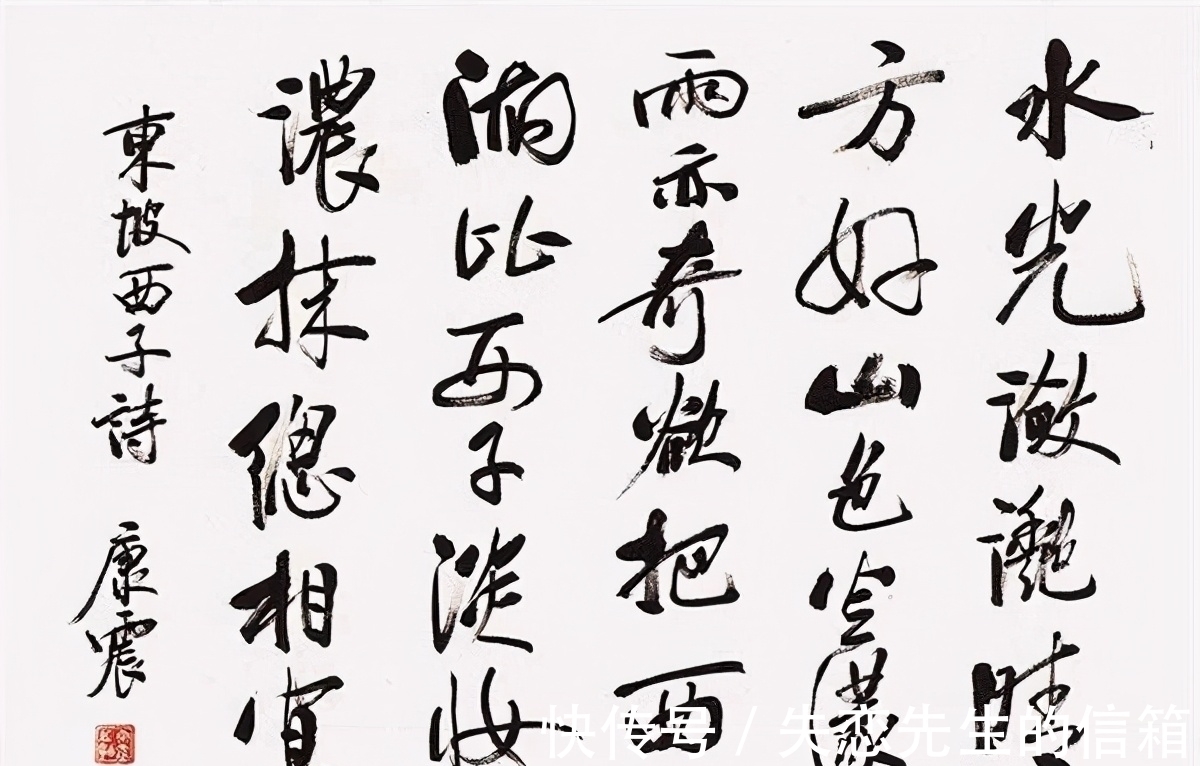 水光瀲灩晴
方好山色空濛
雨亦奇欲把西
湖比西子淡妆
濃抹總相宜
東坡西子詩 康震
快传号 / 失恋先生的信箱